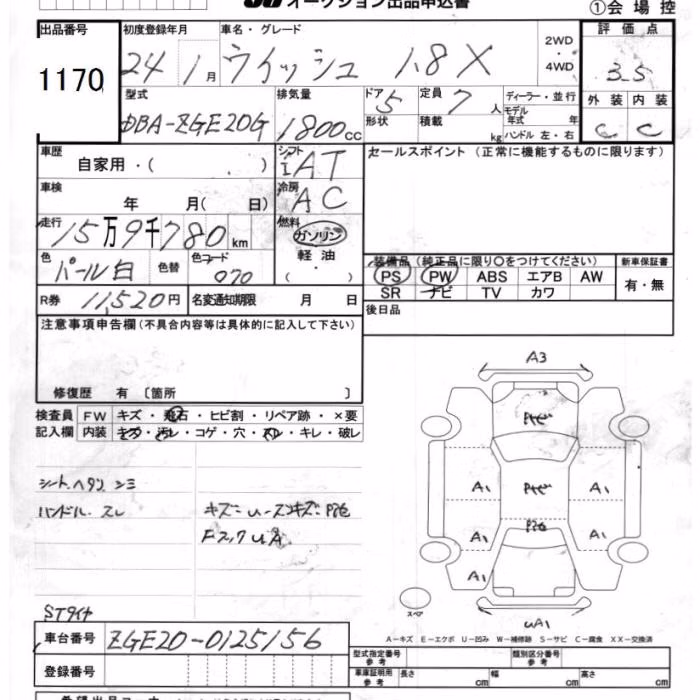 オークション出品申込書
①会場控
出品番号 1170
初度登録年月 24 1月
車名・グレード ウイッシュ 1.8X
2WD・4WD
評価点 3.5
型式 DBA-ZGE20G
排気量 1800cc
ドア 5 形状
定員 7人 積載 kg
ディーラー・並行
モデル年式 年
ハンドル 左・右
外装 C 内装 C
車歴 自家用・( )
シフト I AT
セールスポイント (正常に機能するものに限ります)
車検 年 月( 日)
冷房 AC
走行 15万9千780km
燃料 ガソリン
軽油
( )
色 パール白 色替 色コード 070
装備品(純正品に限り○をつけてください)
PS PW ABS エアB AW
SR ナビ TV カワ
新車保証書
有・無
R券 11,520円 名変通知期限 月 日
後日品
注意事項申告欄(不具合内容等は具体的に記入して下さい)
修復歴 有〔箇所 〕
検査員記入欄
FW キズ・飛石・ヒビ割・リペア跡・×要
内装 キズ・汚レ・コゲ・穴・スレ・キレ・破レ
A3
A1 A1
A1 A1
A1
UA1
スペア
シートヘタリ シミ
ハンドル.スレ
STライナ
車台番号 ZGE20-0125156
登録番号
A-キズ E-エクボ U-凹み W-補修跡 S-サビ C-腐食 XX-交換済
型式指定番号 参考
類別区分番号 参考
車庫証明用 参考 長さ cm 幅 cm 高さ cm
希望出品コーナー